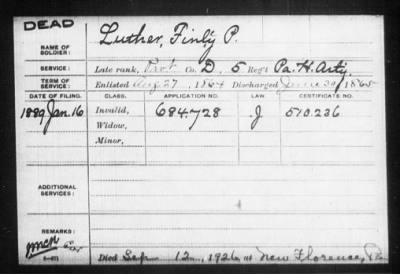 DEAD
NAME OF SOLDIER: Luther, Finly P.
SERVICE: Late rank, Pvt. Co. D, 5 Reg't Pa. H. Arty.
TERM OF SERVICE: Enlisted Aug 27, 1864 Discharged June 30, 1865
DATE OF FILING. CLASS. APPLICATION NO. LAW CERTIFICATE NO.
1889 Jan. 16 Invalid, 684.728 J 510.236
Widow,
Minor,
ADDITIONAL SERVICES:
REMARKS:
Died Sep 12, 1926, at New Florence, Pa